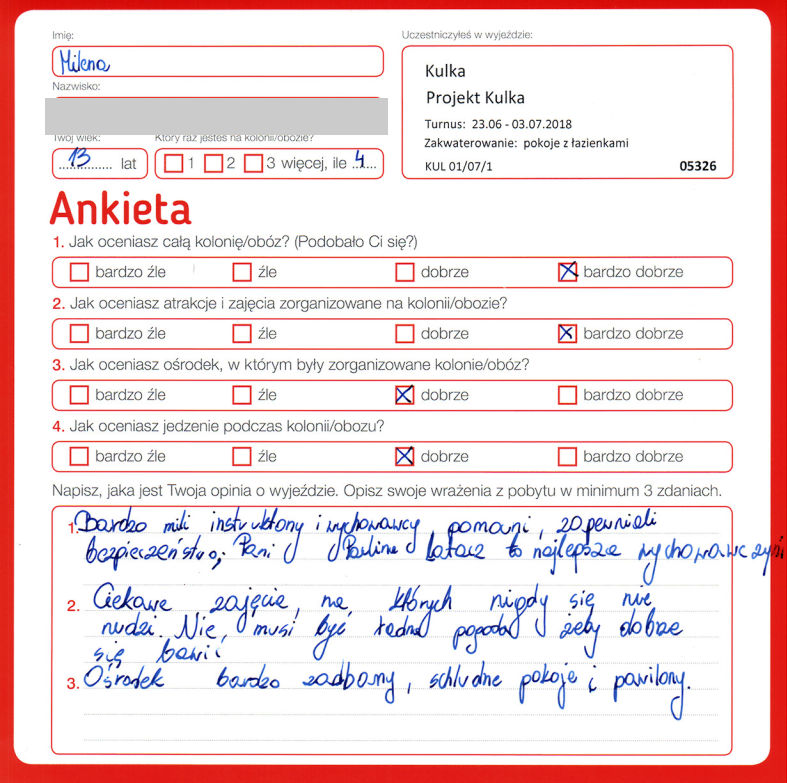 Imię:
Milena
Nazwisko:
Twój wiek:
13 lat
Który raz jesteś na kolonii/obozie?
1 2 3 więcej, ile 4
Uczestniczyłeś w wyjeździe:
Kulka
Projekt Kulka
Turnus: 23.06 - 03.07.2018
Zakwaterowanie: pokoje z łazienkami
KUL 01/07/1 05326
Ankieta
1. Jak oceniasz całą kolonię/obóz? (Podobało Ci się?)
bardzo źle źle dobrze bardzo dobrze
2. Jak oceniasz atrakcje i zajęcia zorganizowane na kolonii/obozie?
bardzo źle źle dobrze bardzo dobrze
3. Jak oceniasz ośrodek, w którym były zorganizowane kolonie/obóz?
bardzo źle źle dobrze bardzo dobrze
4. Jak oceniasz jedzenie podczas kolonii/obozu?
bardzo źle źle dobrze bardzo dobrze
Napisz, jaka jest Twoja opinia o wyjeździe. Opisz swoje wrażenia z pobytu w minimum 3 zdaniach.
1. Bardzo mili instruktorzy i wychowawcy pomocni, zapewnieli
bezpieczeństwo; Pani Paulina to najlepsza wychowawczyni
2. Ciekawe zajęcia, na, których nigdy się nie
nudzi. Nie, musi być ładna pogoda żeby dobrze
się bawić
3. Ośrodek bardzo zadbany, schludne pokoje i pawilony.